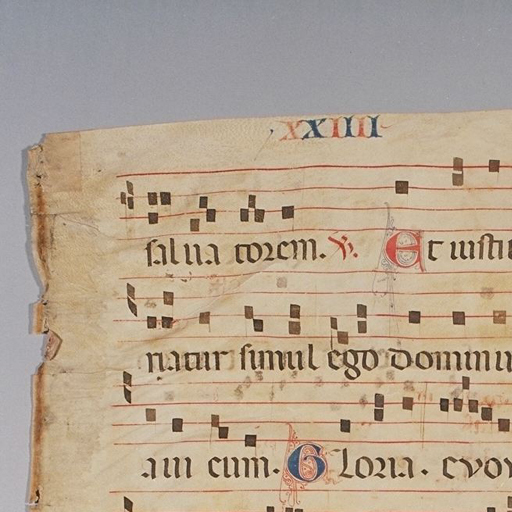 XXIIII
saluatorem. V. Et iusti
riatur simul ego dominu
aui eum. Gloria. evov